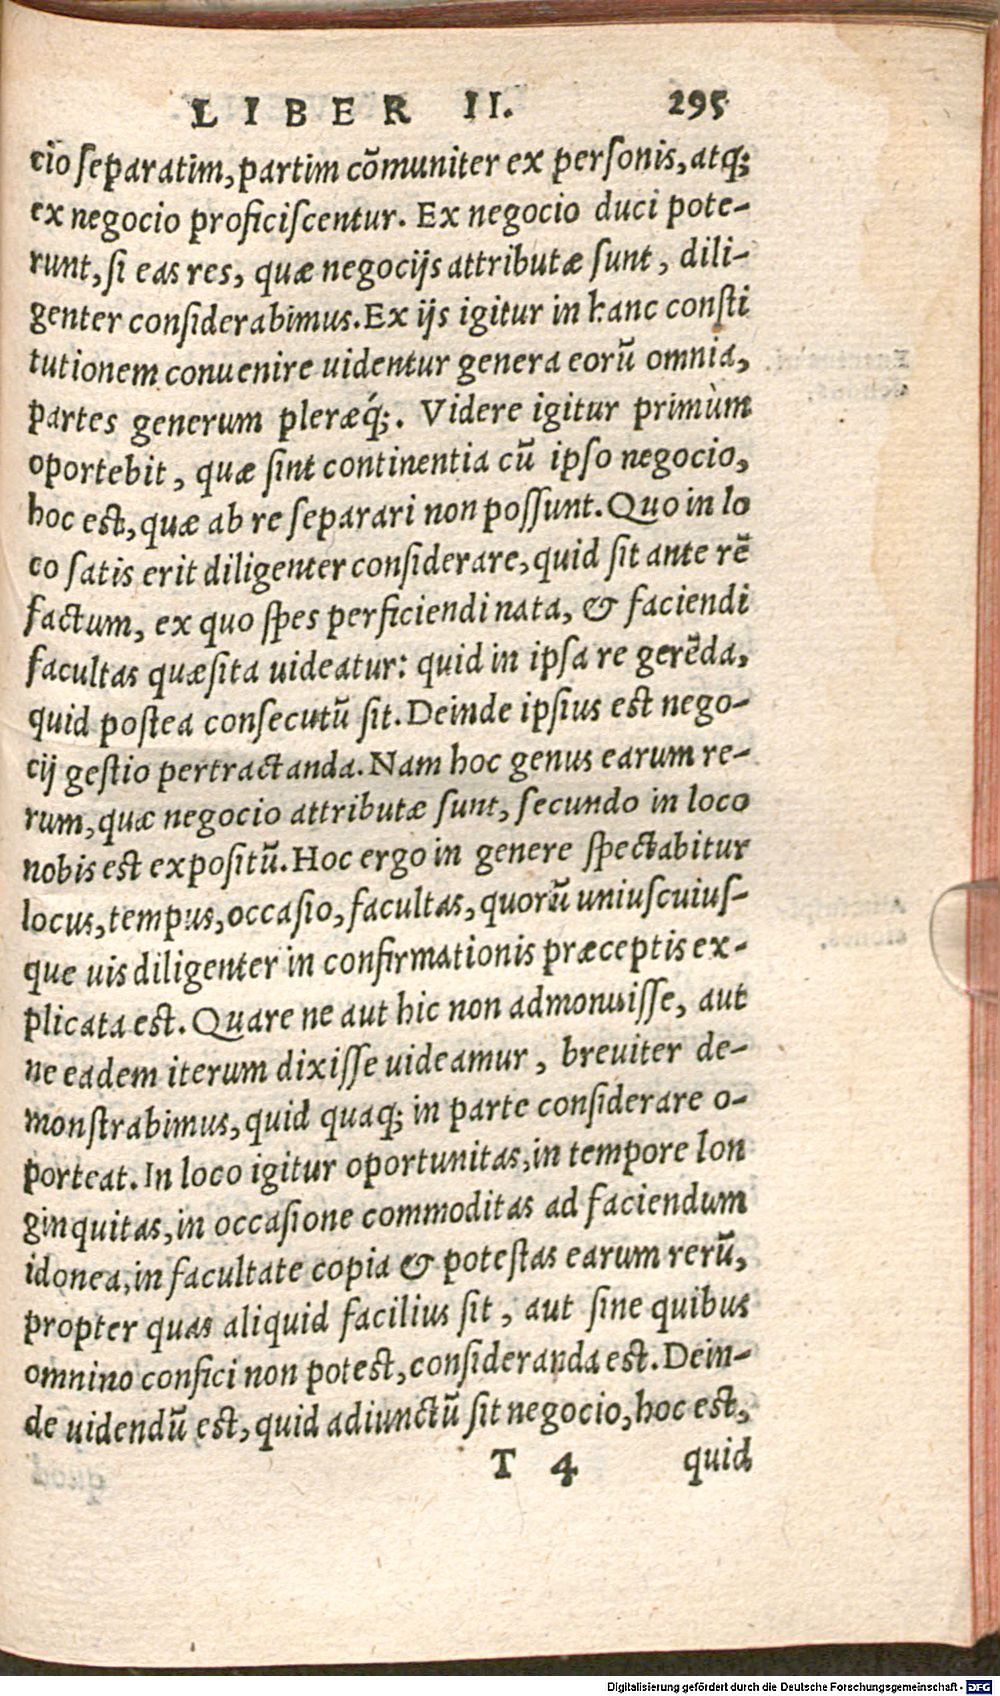 LIBER II. 295
cio separatim, partim cõmuniter ex personis, atq;
ex negocio proficiscentur. Ex negocio duci pote-
runt, si eas res, quæ negocijs attributæ sunt, dili-
genter considerabimus. Ex ijs igitur in hanc consti
tutionem conuenire uidentur genera eorũ omnia,
partes generum pleræq́;. Videre igitur primùm
oportebit, quæ sint continentia cũ ipso negocio,
hoc est, quæ ab re separari non possunt. Quo in lo
co satis erit diligenter considerare, quid sit ante rẽ
factum, ex quo spes perficiendi nata, & faciendi
facultas quæsita uideatur: quid in ipsa re gerẽda,
quid postea consecutũ sit. Deinde ipsius est nego-
cij gestio pertractanda. Nam hoc genus earum re-
rum, quæ negocio attributæ sunt, secundo in loco
nobis est expositũ. Hoc ergo in genere spectabitur
locus, tempus, occasio, facultas, quorũ uniuscuius-
que uis diligenter in confirmationis præceptis ex-
plicata est. Quare ne aut hic non admonuisse, aut
ne eadem iterum dixisse uideamur, breuiter de-
monstrabimus, quid quaq; in parte considerare o-
porteat. In loco igitur oportunitas, in tempore lon
ginquitas, in occasione commoditas ad faciendum
idonea, in facultate copia & potestas earum rerũ,
propter quas aliquid facilius sit, aut sine quibus
omnino confici non potest, consideranda est. Dein-
de uidendũ est, quid adiunctũ sit negocio, hoc est,
T 4 quid
Digitalisierung gefördert durch die Deutsche Forschungsgemeinschaft - DFG